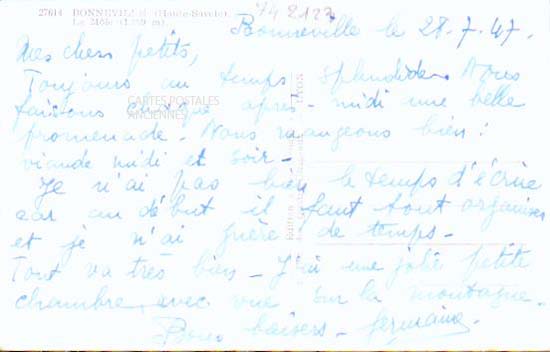 27614 BONNEVILLE (Haute-Savoie).
Le Môle (1.869 m)
74 2123
Bonneville le 28-7-47.
Mes chers petits,
Toujours un temps splendide. Nous
faisons chaque après-midi une belle
CARTES POSTALES
ANCIENNES
promenade. Nous mangeons bien :
viande midi et soir -
Je n'ai pas bien le temps d'écrire
car au début il faut tout organiser
et je n'ai guère de temps -
Tout va très bien - J'ai une jolie petite
chambre avec vue sur la montagne.
Bons baisers - Germaine.